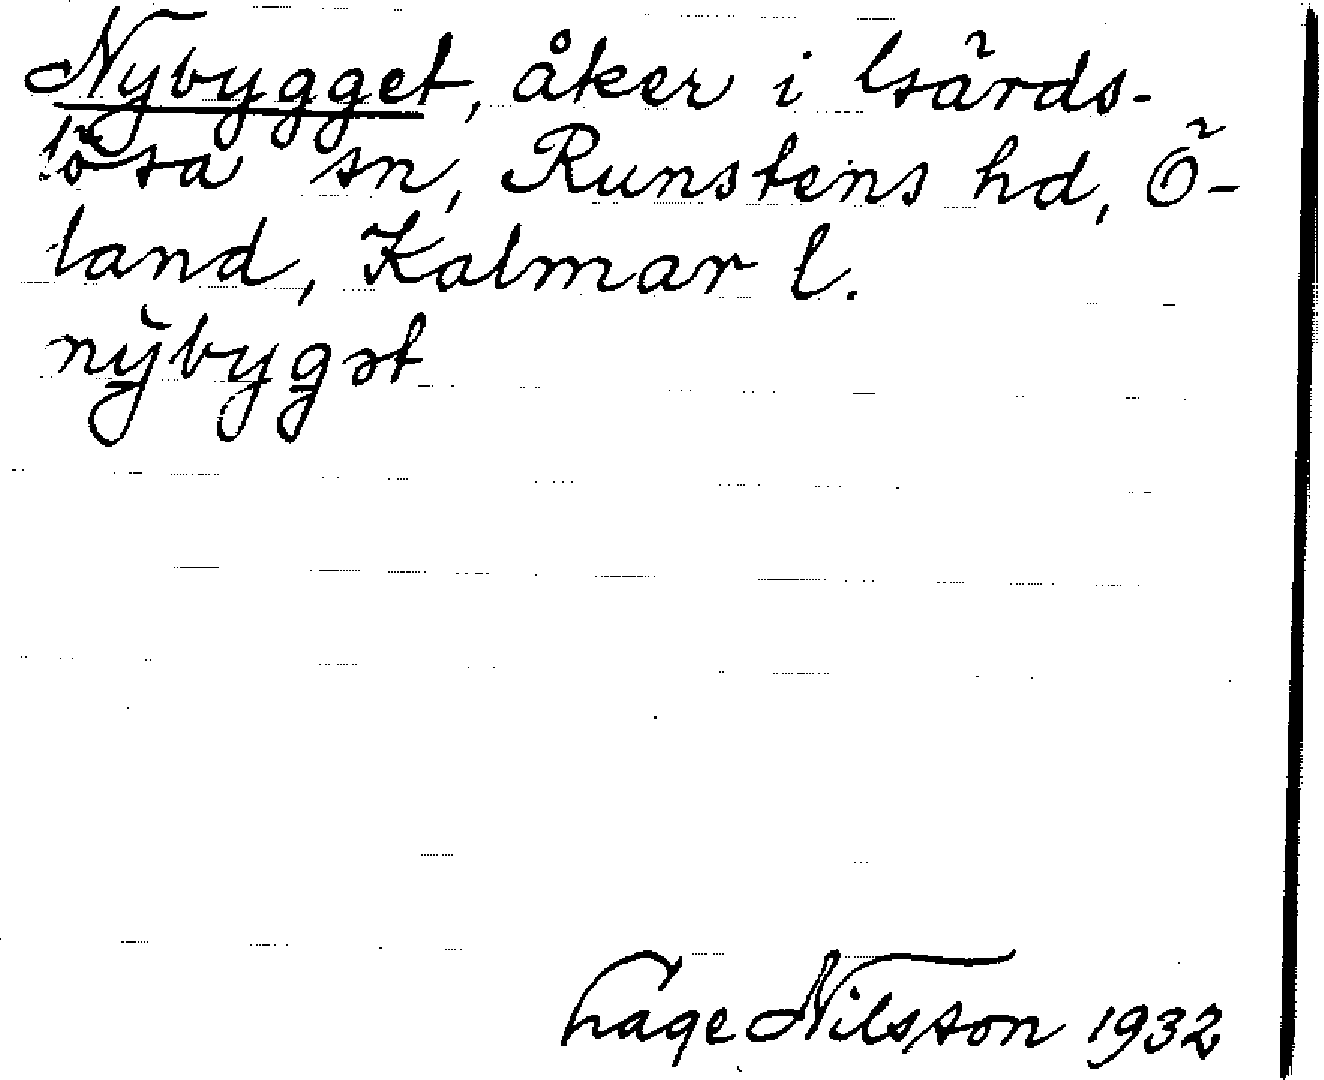 Nybygget, åker i Gärds-
lösa sn, Runstens hd, Ö-
land, Kalmar l.
ny̆bygət
Tage Nilsson 1932